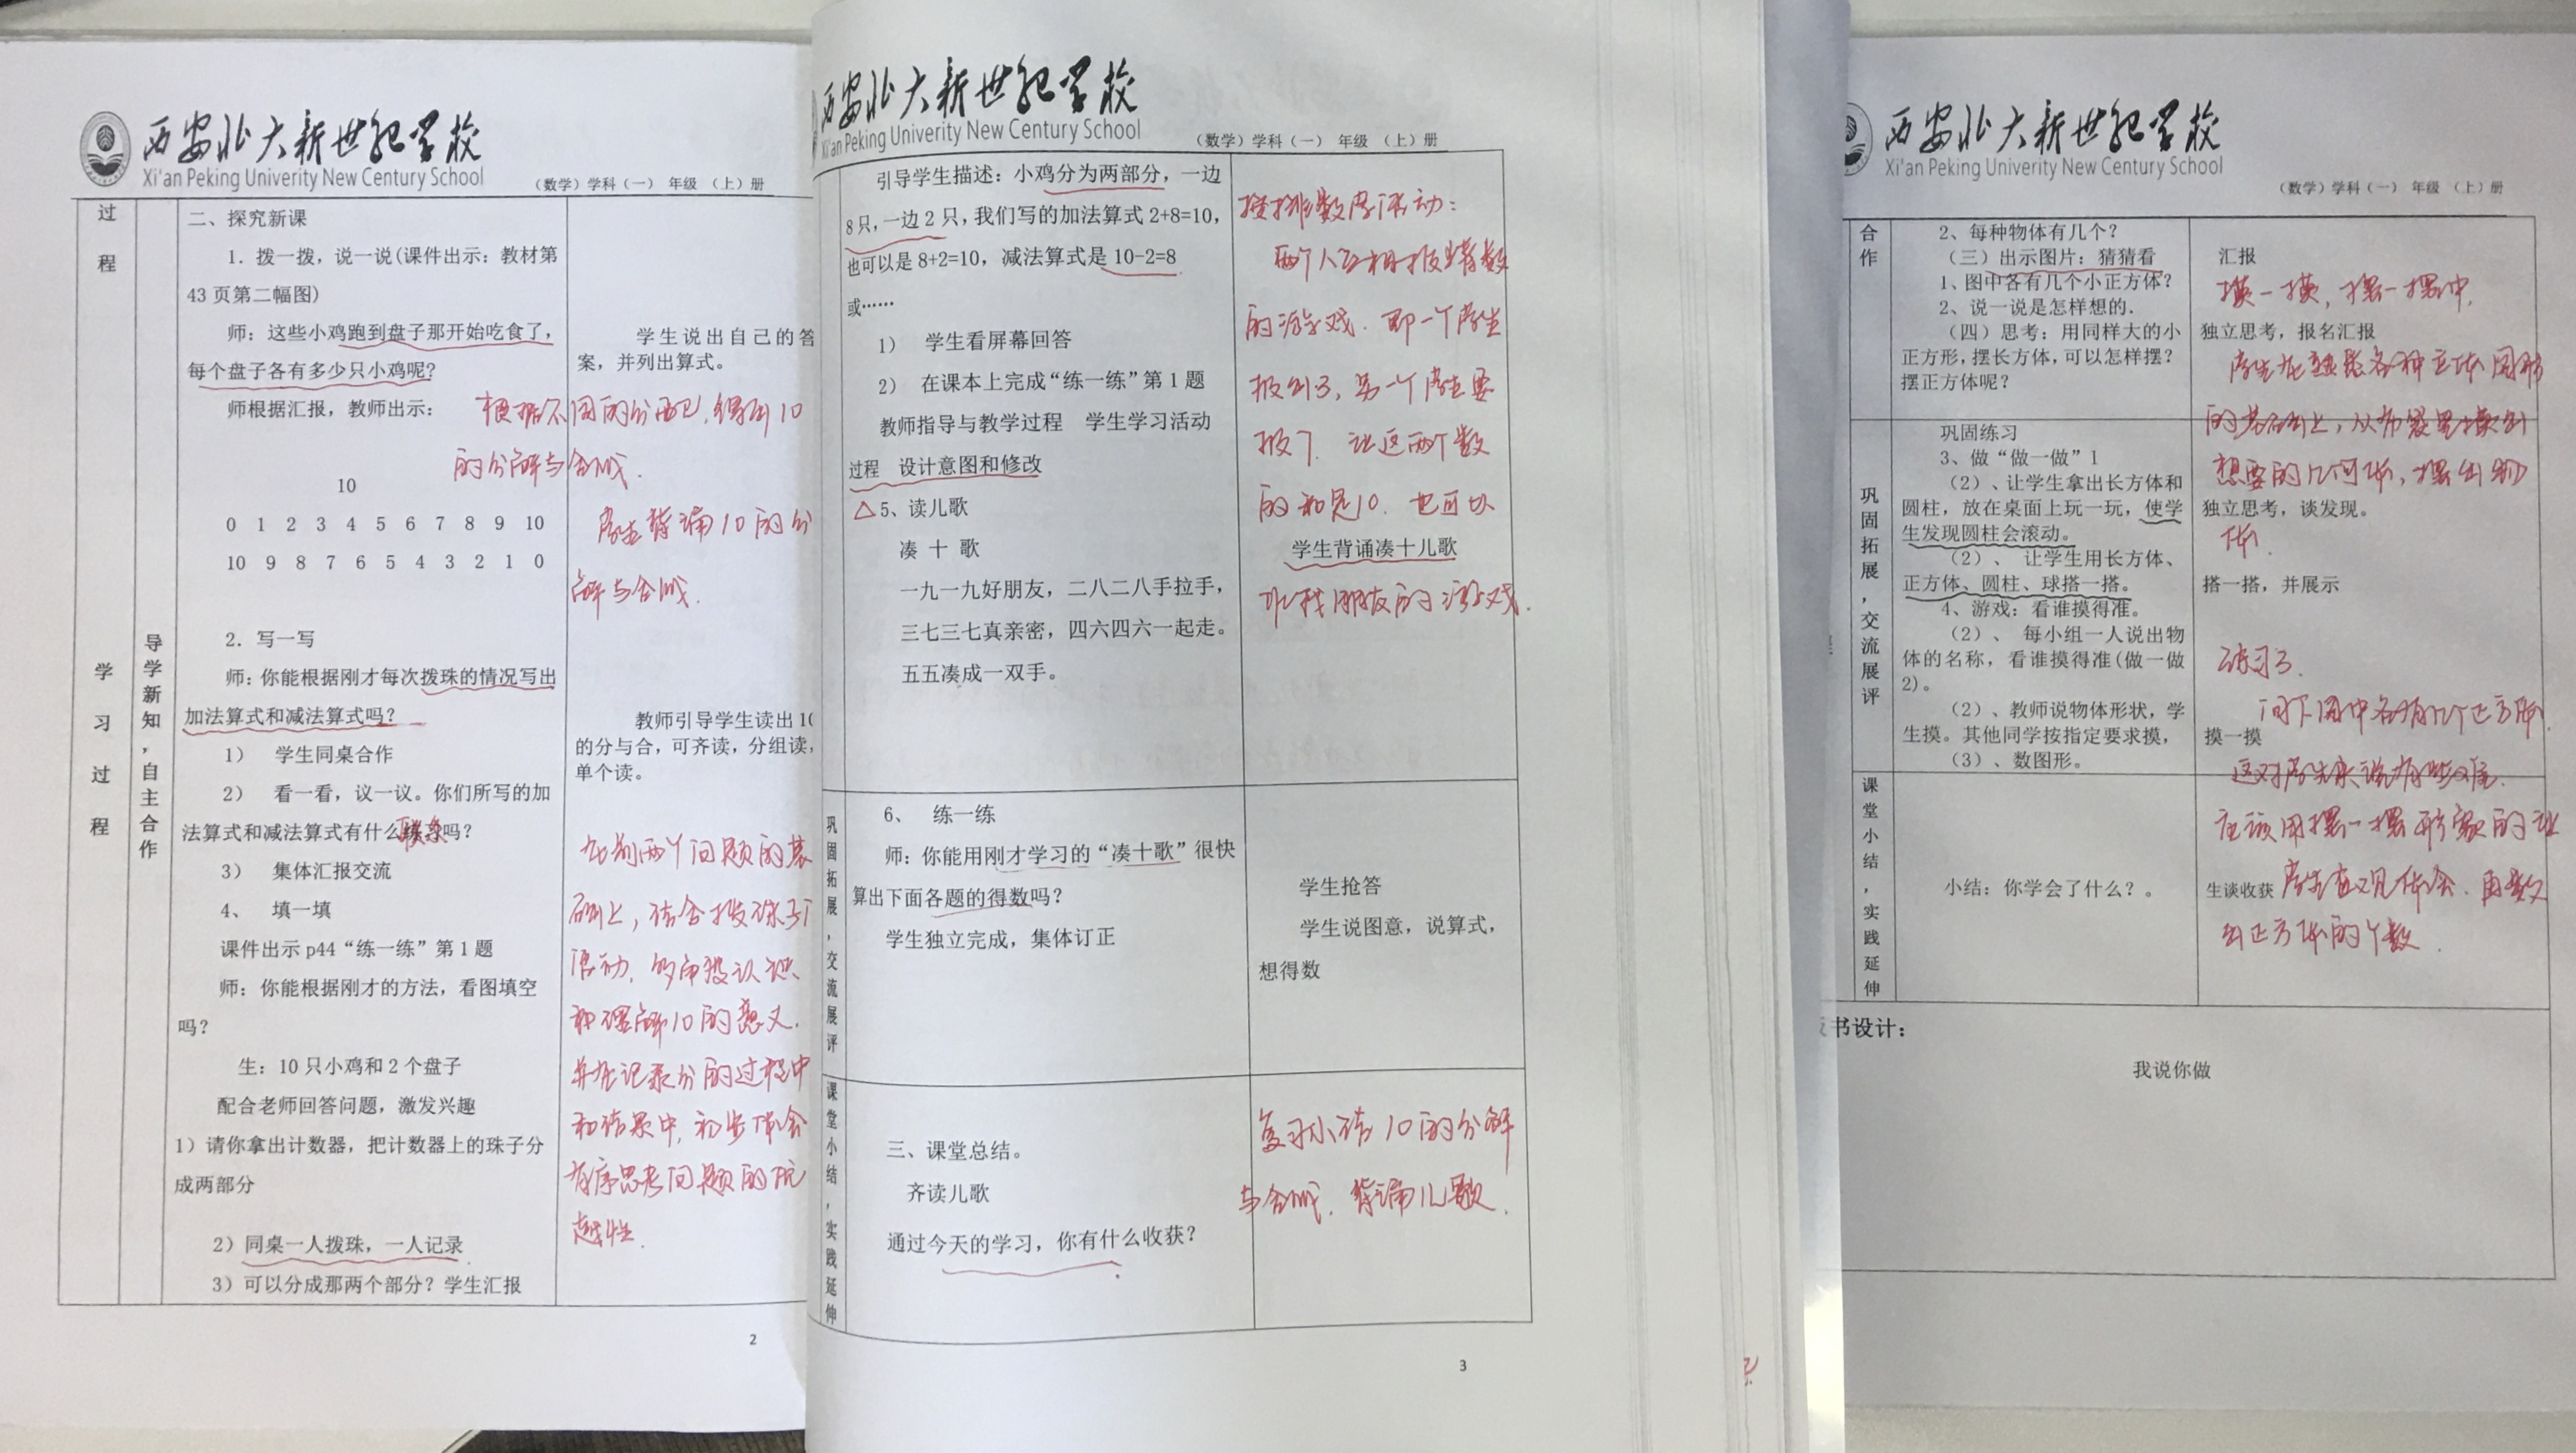 西安北大新世纪学校
Xi'an Peking Univerity New Century School
（数学）学科（一） 年级 （上）册
过
程
学
习
过
程
导学新知，自主合作
二、探究新课
1．拨一拨，说一说(课件出示：教材第
43 页第二幅图)
师：这些小鸡跑到盘子那开始吃食了，
每个盘子各有多少只小鸡呢？
师根据汇报，教师出示：
10
0 1 2 3 4 5 6 7 8 9 10
10 9 8 7 6 5 4 3 2 1 0
2．写一写
师：你能根据刚才每次拨珠的情况写出
加法算式和减法算式吗？
1） 学生同桌合作
2） 看一看，议一议。你们所写的加
法算式和减法算式有什么联系吗？
3） 集体汇报交流
4、 填一填
课件出示 p44“练一练”第 1 题
师：你能根据刚才的方法，看图填空
吗？
生：10 只小鸡和 2 个盘子
配合老师回答问题，激发兴趣
1）请你拿出计数器，把计数器上的珠子分
成两部分
2）同桌一人拨珠，一人记录
3）可以分成那两个部分？学生汇报
学生说出自己的答
案，并列出算式。
根据不同的分配，得到10
的分解与合成．
学生背诵10的分
解与合成．
教师引导学生读出 10
的分与合，可齐读，分组读，
单个读。
在前两个问题的基
础上，结合拨珠子
活动，
和理解10的意义．
并在记录分的过程中
和结果中，初步体会
有序思考问题的优
越性．
2
西安北大新世纪学校
Xi'an Peking Univerity New Century School
（数学）学科（一） 年级 （上）册
引导学生描述：小鸡分为两部分，一边
8 只，一边 2 只，我们写的加法算式 2+8=10，
也可以是 8+2=10，减法算式是 10-2=8
或……
1） 学生看屏幕回答
2） 在课本上完成“练一练”第 1 题
教师指导与教学过程 学生学习活动
过程 设计意图和修改
△5、读儿歌
凑 十 歌
一九一九好朋友，二八二八手拉手，
三七三七真亲密，四六四六一起走。
五五凑成一双手。
安排数学活动：
两个人互相报特数
的游戏．即一个学生
报出3，另一个学生要
报7．让这两个数
的和是10．也可以
学生背诵凑十儿歌
让找朋友的游戏．
巩固拓展，交流展评
6、 练一练
师：你能用刚才学习的“凑十歌”很快
算出下面各题的得数吗？
学生独立完成，集体订正
学生抢答
学生说图意，说算式，
想得数
课堂小结，实践延伸
三、课堂总结。
齐读儿歌
通过今天的学习，你有什么收获？
复习小结10的分解
与合成．背诵儿歌．
3
西安北大新世纪学校
Xi'an Peking Univerity New Century School
（数学）学科（一） 年级 （上）册
合作
2、每种物体有几个？
（三）出示图片：猜猜看
1、图中各有几个小正方体？
2、说一说是怎样想的．
（四）思考：用同样大的小
正方形，摆长方体，可以怎样摆？
摆正方体呢？
汇报
摸一摸，摆一摆中．
独立思考，报名汇报
学生在熟悉各种立体图形
的基础上，从布袋里摸出
想要的几何体，摆出物
体．
巩固拓展，交流展评
巩固练习
3、做“做一做”1
（2）、让学生拿出长方体和
圆柱，放在桌面上玩一玩，使学
生发现圆柱会滚动。
（2）、 让学生用长方体、
正方体、圆柱、球搭一搭。
4、游戏：看谁摸得准。
（2）、 每小组一人说出物
体的名称，看谁摸得准(做一做
2)。
（2）、教师说物体形状，学
生摸。其他同学按指定要求摸，
（3）、数图形。
独立思考，谈发现。
搭一搭，并展示
练习3．
问下图中各有几个正方体．
摸一摸
这对学生来说有些难．
应该用摆一摆形象的让
学生直观体会．再数
出正方体的个数．
课堂小结，实践延伸
小结：你学会了什么？。
生谈收获
书设计：
我说你做